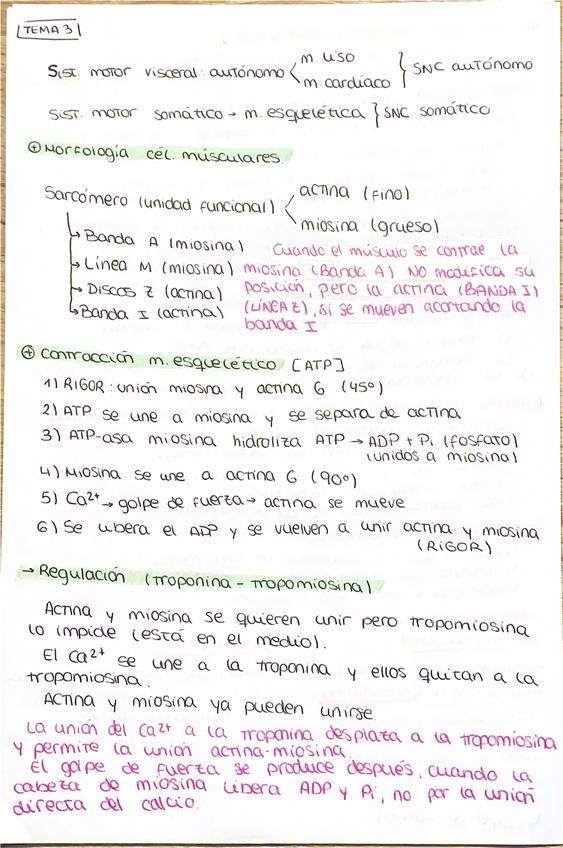 TEMA 3
Sist. motor visceral: autónomo < m. liso } SNC autónomo
m. cardíaco
Sist. motor somático → m. esquelética } SNC somático
⊕ Morfología cél. músculares.
Sarcómero (unidad funcional) < actina (fino)
miosina (grueso)
↳ Banda A (miosina)
→ Línea M (miosina)
→ Discos Z (actina)
↳ Banda I (actina)
Cuando el músculo se contrae la
miosina (Banda A) NO modifica su
posición, pero la actina (BANDA I)
(LÍNEA Z), sí se mueven acortando la
banda I
⊕ Contracción m. esquelético [ATP]
1) RIGOR: unión miosina y actina G (45º)
2) ATP se une a miosina y se separa de actina
3) ATP-asa miosina hidroliza ATP → ADP + Pi (fosfato)
(unidos a miosina)
4) Miosina se une a actina G (90º)
5) Ca²⁺ → golpe de fuerza → actina se mueve
6) Se libera el ADP y se vuelven a unir actina y miosina
(RIGOR)
→ Regulación (troponina - tropomiosina)
Actina y miosina se quieren unir pero tropomiosina
lo impide (está en el medio).
El Ca²⁺ se une a la troponina y ellos quitan a la
tropomiosina.
Actina y miosina ya pueden unirse.
La unión del Ca²⁺ a la troponina desplaza a la tropomiosina
y permite la unión actina-miosina.
El golpe de fuerza se produce después, cuando la
cabeza de miosina libera ADP y Pi, no por la unión
directa del calcio.